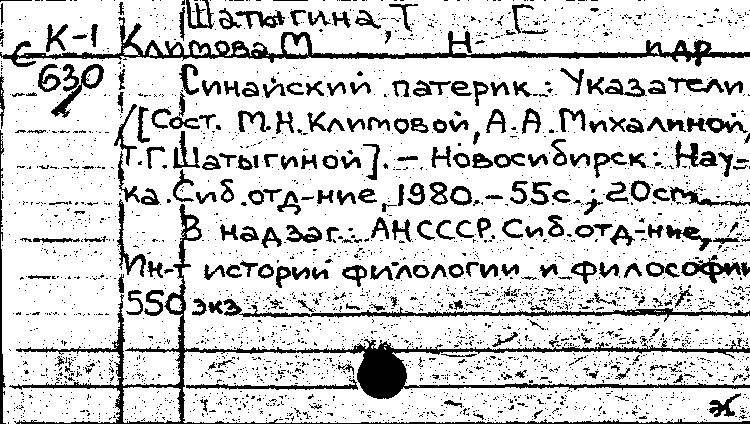 Шатыгина, Т Г
К-1 Климова, М Н и др
с 630 Синайский патерик: Указатели
/[Сост. М.Н.Климовой, А.А.Михалиной,
Т.Г.Шатыгиной]. — Новосибирск: Нау-
ка.Сиб.отд-ние, 1980. – 55с.; 20см.
В надзаг.: АН СССР. Сиб.отд-ние,
Ин-т истории филологии и философии
550 экз